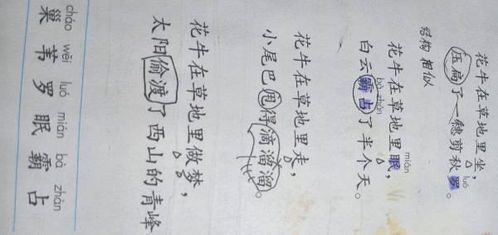 花牛在草地里坐,
luó
压扁了一穗剪秋罗。
结构相似
mián
花牛在草地里眠,
bà zhàn
白云霸占了半个天。
花牛在草地里走,
小尾巴甩得滴溜溜。
花牛在草地里做梦,
太阳偷渡了西山的青峰
cháo wěi luó mián bà zhàn
巢 苇 罗 眠 霸 占